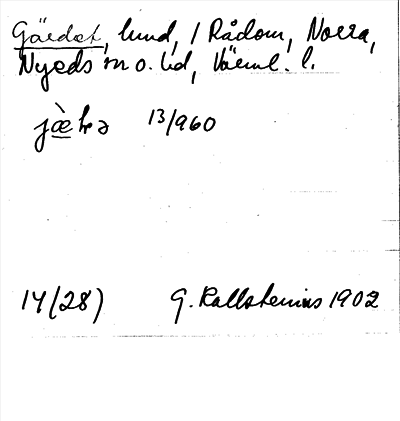 Gärdet, hmd, 1 Rådom, Norra,
Nyeds sn o. hd, Värml. l.
13/960
14(28) G. Kallstenius 1902